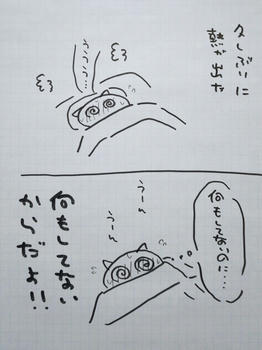 久しぶりに
熱が出た
うーんうーん…
うーん
うーん
何もしてないのに…
何もしてない
からだよ!!